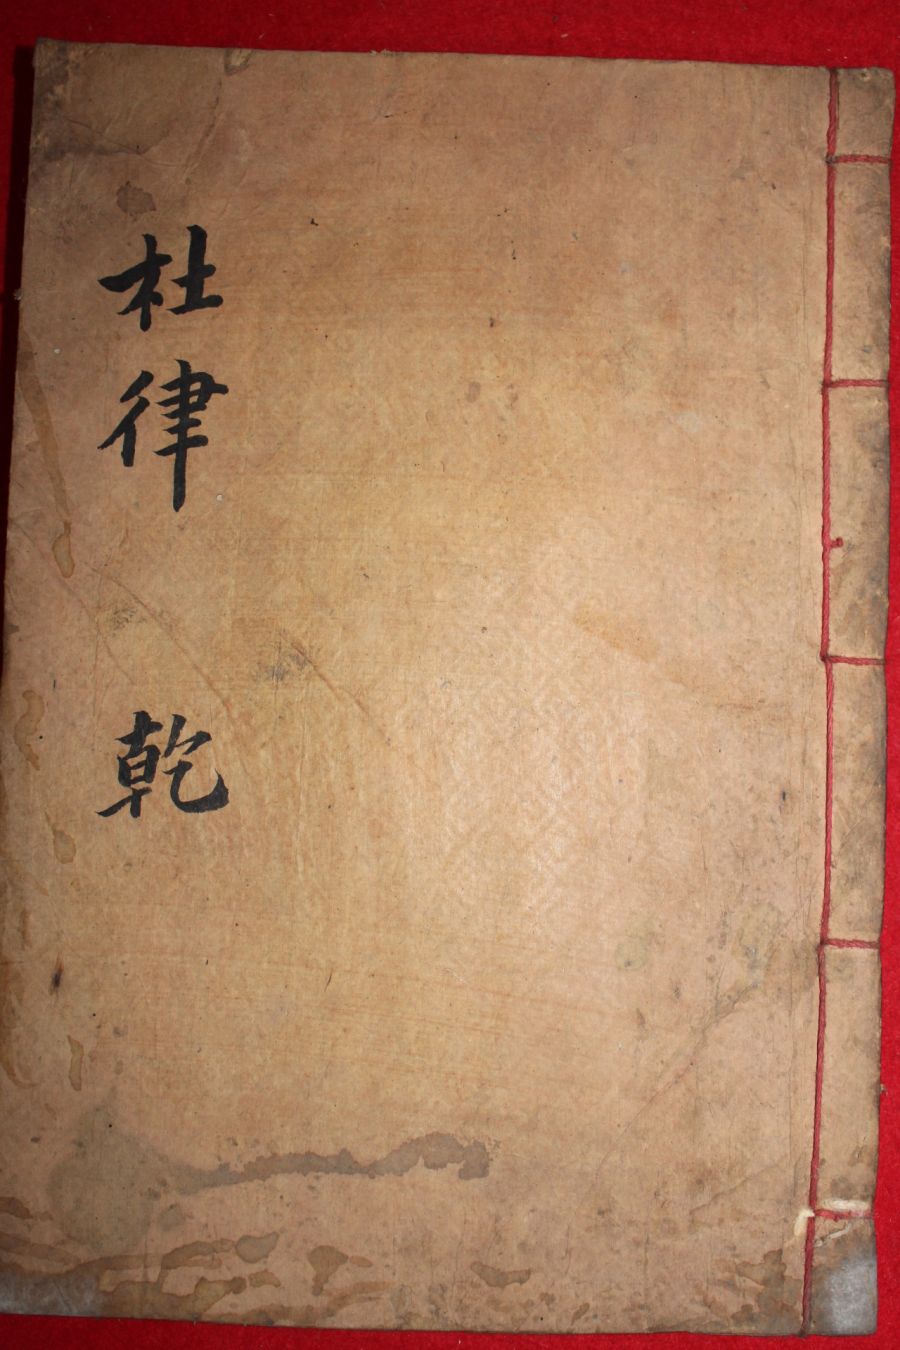 杜律 乾